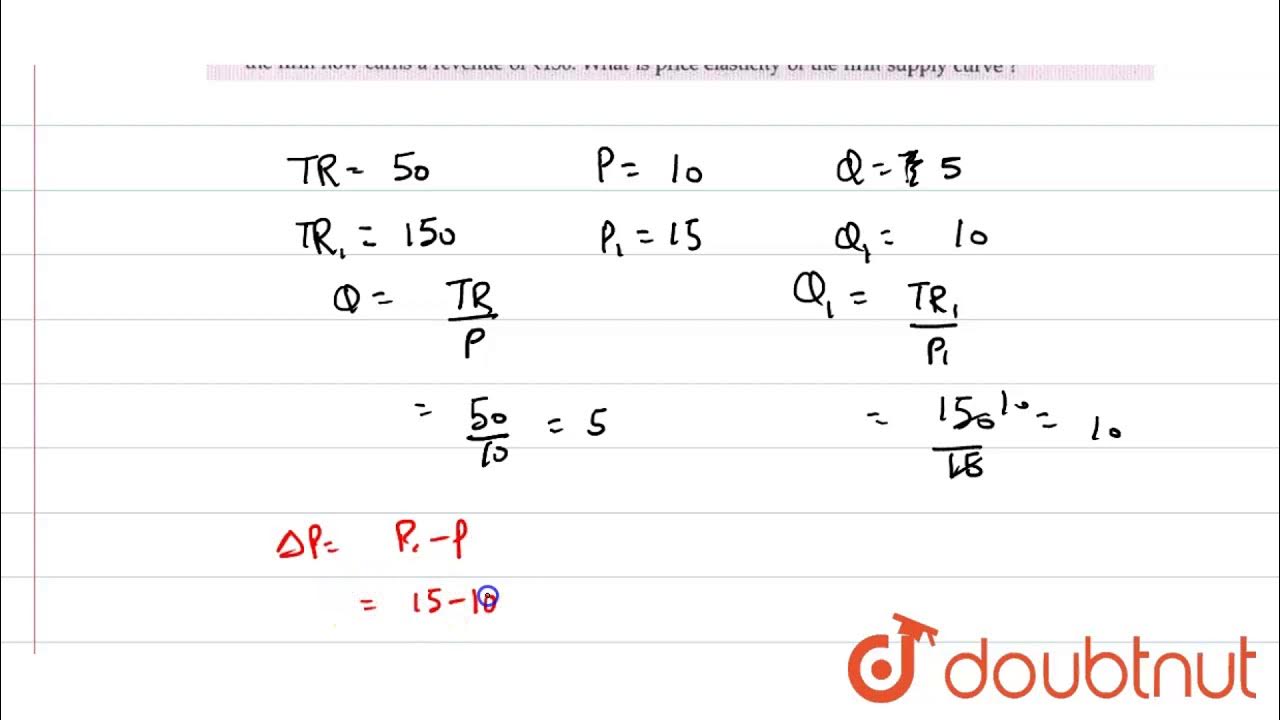 the firm now earns a revenue of ₹150. What is price elasticity of the firm supply curve ?
TR = 50 P = 10 Q = 5
TR₁ = 150 P₁ = 15 Q₁ = 10
Q = TR/P Q₁ = TR₁/P₁
= 50/10 = 5 = 150/15 10 = 10
ΔP = P₁ - P
= 15 - 10
doubtnut